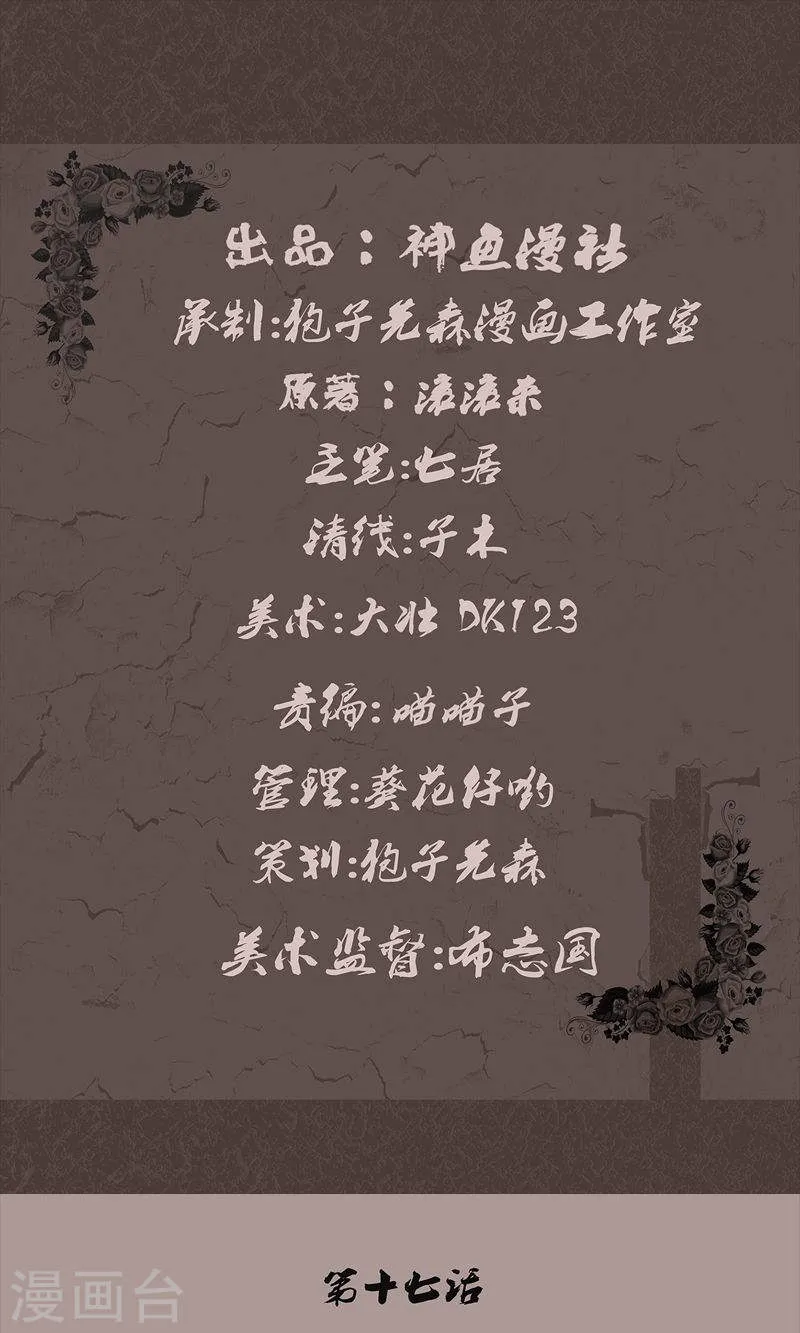 出品：神鱼漫社
承制:狍子先森漫画工作室
原著：滚滚来
主笔:七居
清线:子木
美术:大壮 DK123
责编:喵喵子
管理:葵花仔哟
策划:狍子先森
美术监督:布志国
第十七话
漫画台